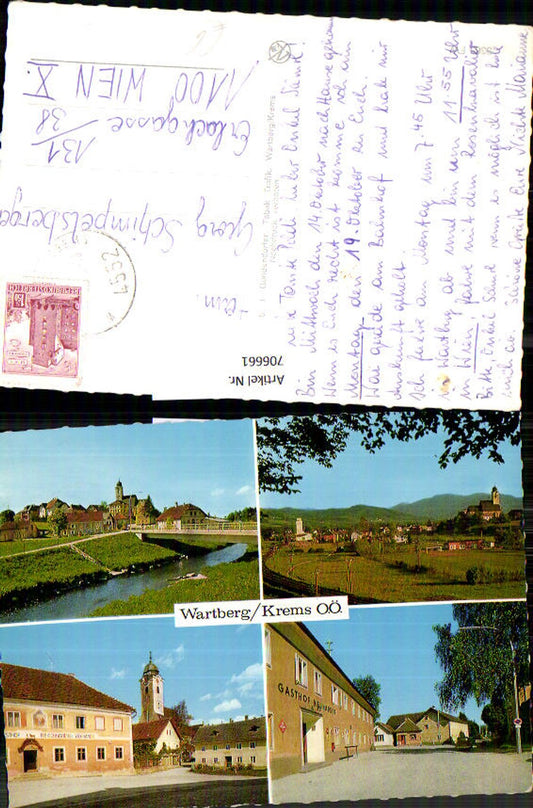 Liebe Tante Resi lieber Onkel Sandi!
Bin Mittwoch den 14 Oktober nach Hause gekommen
Wenn es Euch recht ist komme ich am
Montag den 19. Oktober zu Euch.
War gerade am Bahnhof und habe mir
Auskunft geholt
Ich fahre am Montag um 7.45 Uhr
in Wartberg ab und bin um 11 55 Uhr
in Wien, fahre mit dem Rosenkavalier
Bitte, Onkel Sandi wenn es möglich ist hole
mich ab. Schöne Grüße Eure Nichte Marianne
Wartberg/Krems
An
Georg Schimpelsberger
Erlachgasse 131/38
1100 WIEN X.
REPUBLIK ÖSTERREICH
4552
Artikel Nr.
706661
Wartberg/Krems OÖ.
GASTHOF